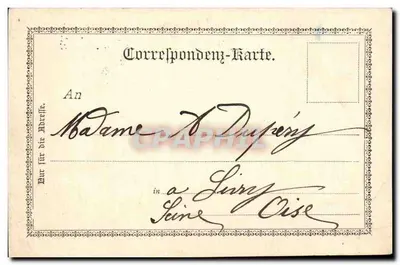 Correspondenz-Karte.
Nur für die Adresse.
An
Madame A Dupéry
CPAPHIL
in a Livry
Seine Oise